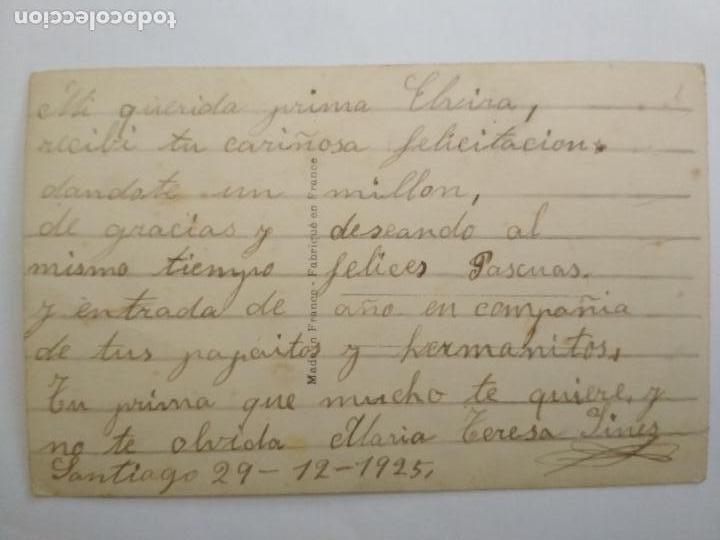 todocoleccion
Mi querida prima Elvira,
recibi tu cariñosa felicitacion.
dandote un millon,
de gracias y deseando al
mismo tiempo felices Pascuas.
y entrada de año en compañia
de tus papaitos y hermanitos,
Tu prima que mucho te quiere y
no te olvida Maria Teresa
Santiago 29-12-1925,
Made in France - Fabriqué en France